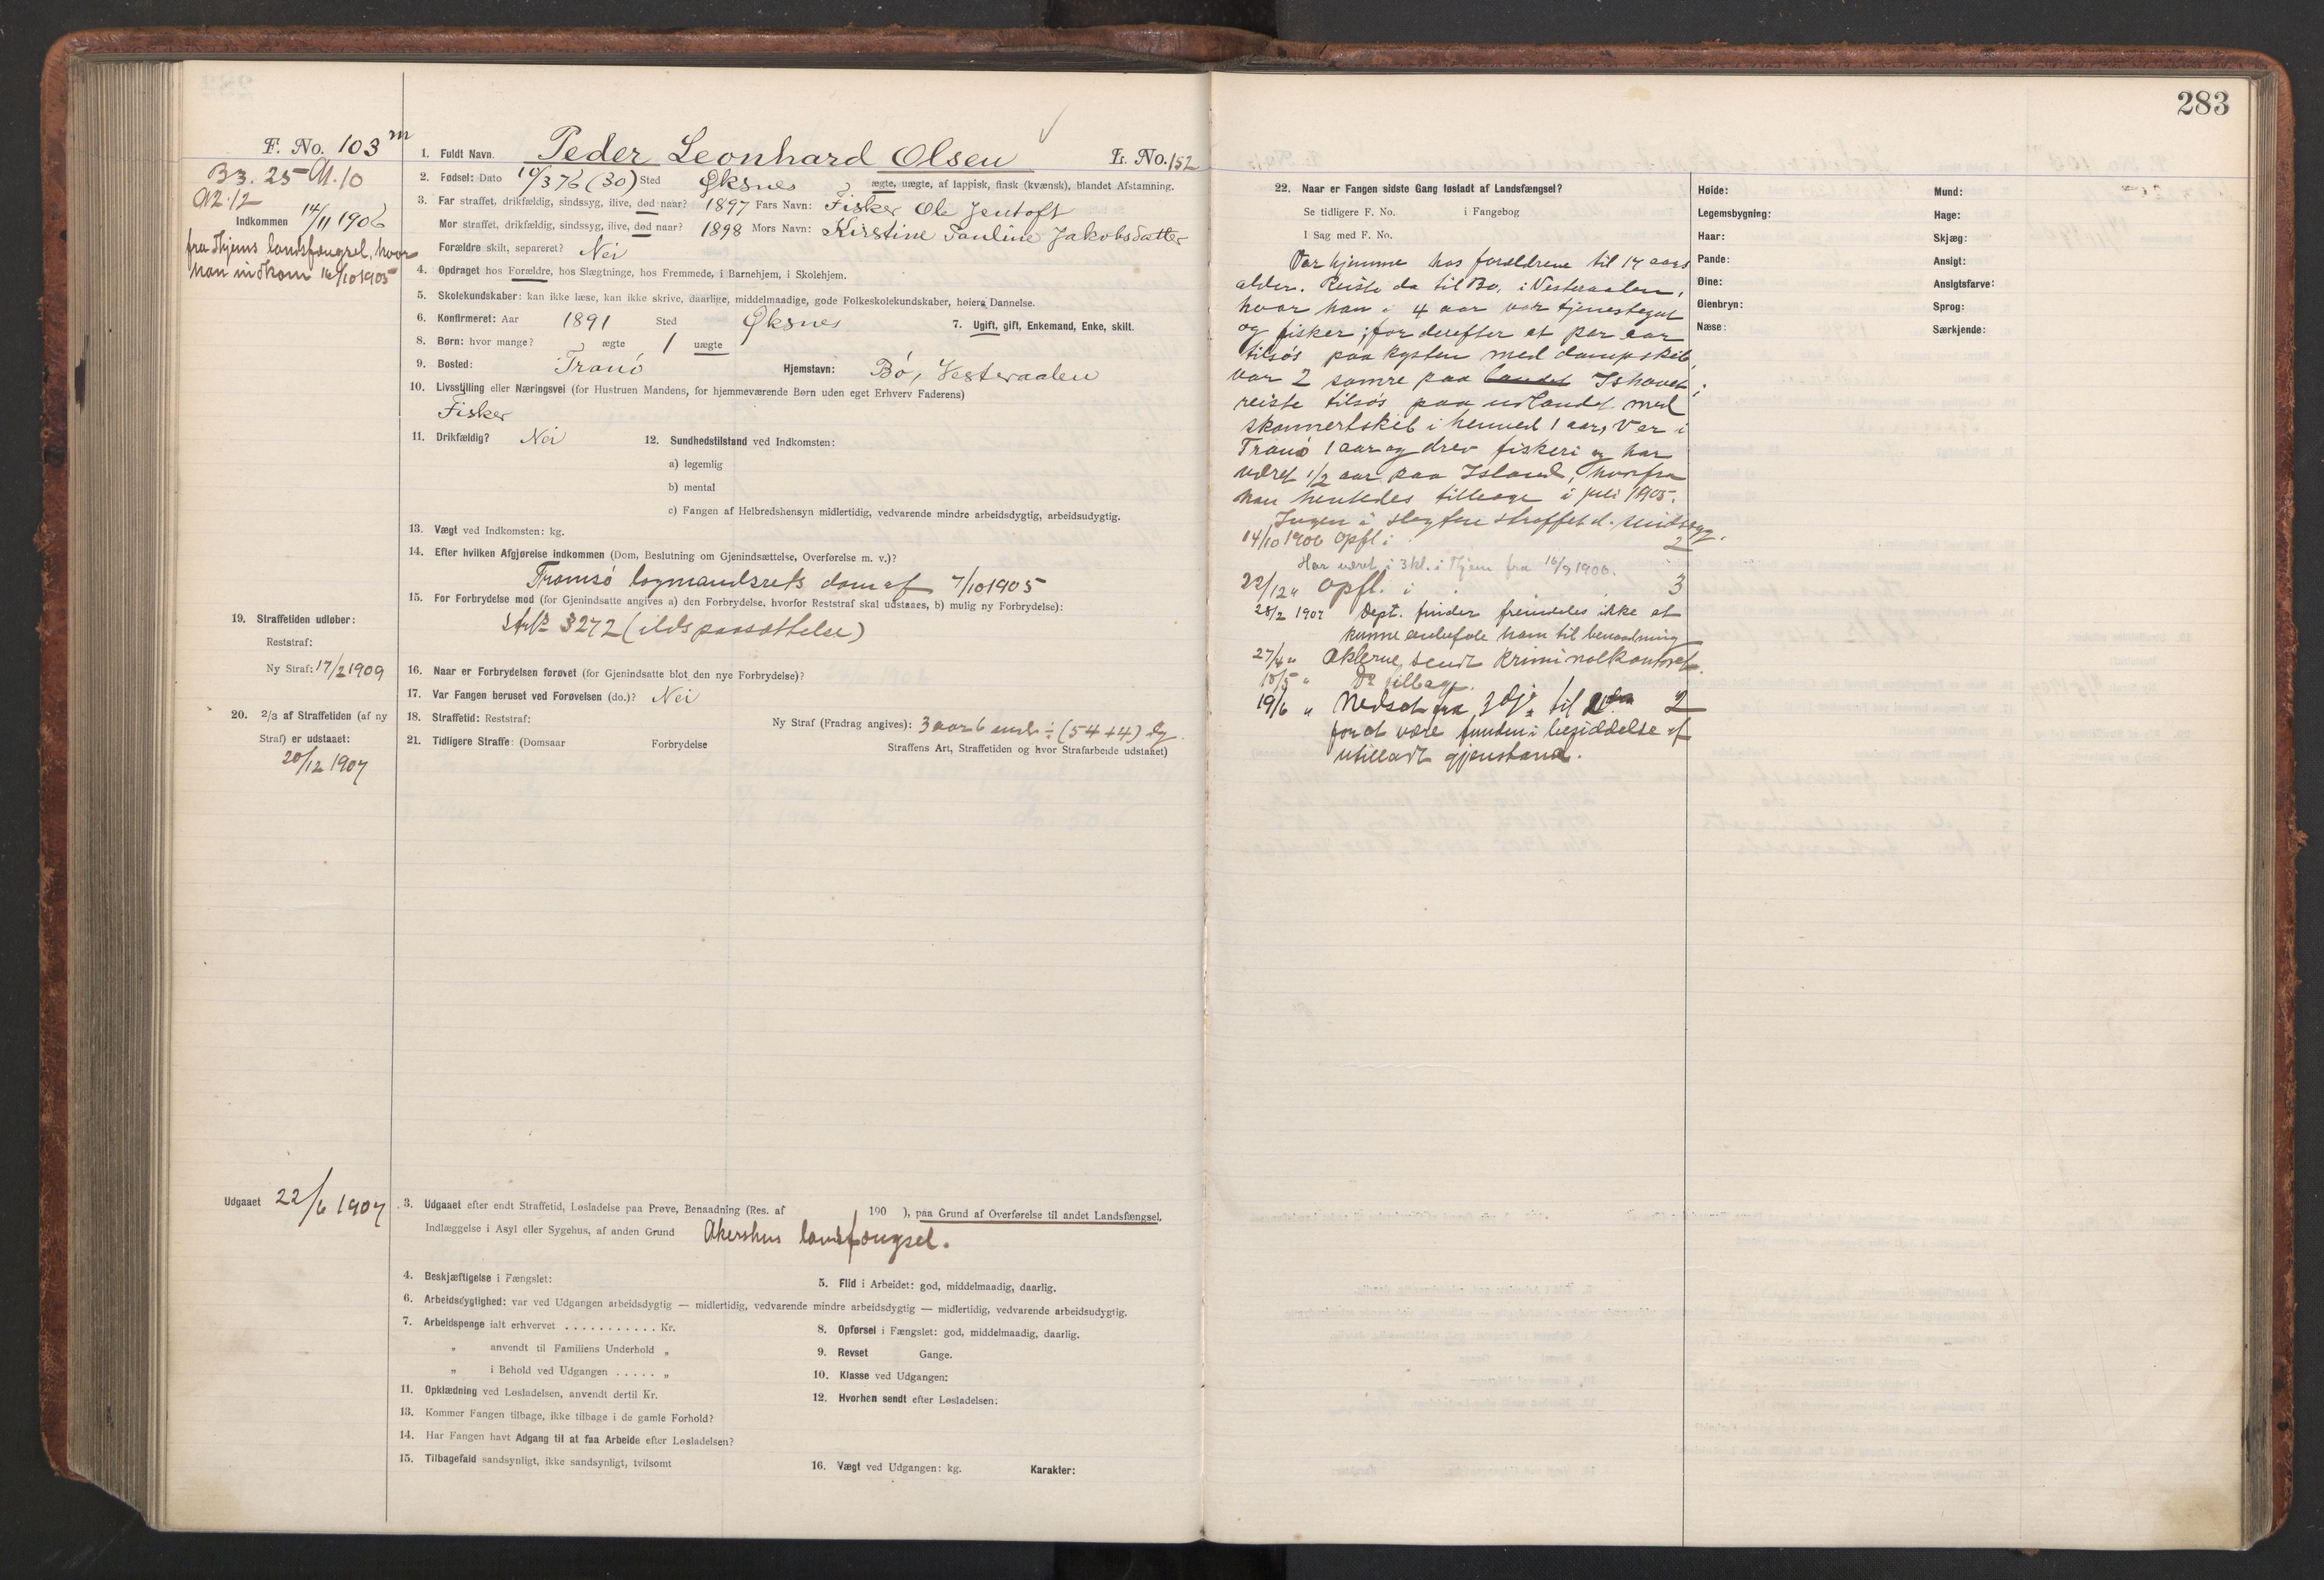 283
F. No. 103 m
B3. 25 A. 10
A2. 12
Indkommen 14/11 1906
fra Thjems landsfængsel, hvor
han indkom 16/10 1905
1. Fuldt Navn. Peder Leonhard Olsen L. No. 152
2. Fødsel: Dato 10/3 76 (30) Sted Øksnes ægte, uægte, af lappisk, finsk (kvænsk), blandet Afstamning.
3. Far straffet, drikfældig, sindssyg, ilive, død naar? 1897 Fars Navn: Fisker Ole Jentoft
Mor straffet, drikfældig, sindssyg, ilive, død naar? 1898 Mors Navn: Kirstine Pauline Jakobsdatter
Forældre skilt, separeret? Nei
4. Opdraget hos Forældre, hos Slægtninge, hos Fremmede, i Barnehjem, i Skolehjem.
5. Skolekundskaber: kan ikke læse, kan ikke skrive, daarlige, middelmaadige, gode Folkeskolekundskaber, høiere Dannelse.
6. Konfirmeret: Aar 1891 Sted Øksnes 7. Ugift, gift, Enkemand, Enke, skilt.
8. Børn: hvor mange? ægte 1 uægte
9. Bosted: Tranö Hjemstavn: Bö, Vesteraalen
10. Livsstilling eller Næringsvei (for Hustruen Mandens, for hjemmeværende Børn uden eget Erhverv Faderens)
Fisker
11. Drikfældig? Nei 12. Sundhedstilstand ved Indkomsten:
a) legemlig
b) mental
c) Fangen af Helbredshensyn midlertidig, vedvarende mindre arbeidsdygtig, arbeidsudygtig.
13. Vægt ved Indkomsten: kg.
14. Efter hvilken Afgjørelse indkommen (Dom, Beslutning om Gjenindsættelse, Overførelse m. v.)?
Tromsö lagmandsrets dom af 7/10 1905
15. For Forbrydelse mod (for Gjenindsatte angives a) den Forbrydelse, hvorfor Reststraf skal udstaaes, b) mulig ny Forbrydelse):
§ 272 (ildspaasættelse)
19. Straffetiden udløber:
Reststraf:
Ny Straf: 17/2 1909
16. Naar er Forbrydelsen forøvet (for Gjenindsatte blot den nye Forbrydelse)?
17. Var Fangen beruset ved Forøvelsen (do.)? Nei
20. 2/3 af Straffetiden (af ny
Straf) er udstaaet:
20/12 1907
18. Straffetid: Reststraf: Ny Straf (Fradrag angives): 3 aar 6 mdr ÷ (54 + 4) dg.
21. Tidligere Straffe: (Domsaar Forbrydelse Straffens Art, Straffetiden og hvor Strafarbeide udstaaet)
Udgaaet 22/6 1907
3. Udgaaet efter endt Straffetid, Løsladelse paa Prøve, Benaadning (Res. af 190 ), paa Grund af Overførelse til andet Landsfængsel,
Indlæggelse i Asyl eller Sygehus, af anden Grund Akershus landsfængsel.
4. Beskjæftigelse i Fængslet:
5. Flid i Arbeidet: god, middelmaadig, daarlig.
6. Arbeidsdygtighed: var ved Udgangen arbeidsdygtig — midlertidig, vedvarende mindre arbeidsdygtig — midlertidig, vedvarende arbeidsudygtig.
7. Arbeidspenge ialt erhvervet . . . . . . . . . . . Kr.
8. Opførsel i Fængslet: god, middelmaadig, daarlig.
" anvendt til Familiens Underhold "
9. Revset Gange.
" i Behold ved Udgangen . . . . . "
10. Klasse ved Udgangen:
11. Opklædning ved Løsladelsen, anvendt dertil Kr.
12. Hvorhen sendt efter Løsladelsen:
13. Kommer Fangen tilbage, ikke tilbage i de gamle Forhold?
14. Har Fangen havt Adgang til at faa Arbeide efter Løsladelsen?
15. Tilbagefald sandsynligt, ikke sandsynligt, tvilsomt
16. Vægt ved Udgangen: kg. Karakter:
22. Naar er Fangen sidste Gang løsladt af Landsfængsel?
Se tidligere F. No. i Fangebog
I Sag med F. No.
Var hjemme hos forældrene til 17 aars
alder. Reiste da til Bö, i Vesteraalen,
hvor han i 4 aar var tjenestegut
og fisker; for derefter et par aar
tilsös paa kysten med dampskib,
var 2 somre paa Ishavet;
reiste tilsös paa udlandet med
skonnertskib i henved 1 aar, Var i
Tranö 1 aar og drev fiskeri og har
været 1/2 aar paa Island, hvorfra
han hentedes tilbage i juli 1905.
Ingen i slegten straffet el. sindssyg.
14/10 1906 opfl. i 2
Har været i 3 kl. i Thjem fra 16/9 1906.
22/12 " opfl. i 3
28/2 1907 Dept. finder fremdeles ikke at
kunne anbefale ham til benaadning
27/4 " Akterne sendt Kriminalkontoret.
10/5 " Do tilbage.
19/6 " Nedsat fra 3dje til 2
for at være funden i besiddelse af
utilladt gjenstand.
Høide:
Legemsbygning:
Haar:
Pande:
Øine:
Øienbryn:
Næse:
Mund:
Hage:
Skjæg:
Ansigt:
Ansigtsfarve:
Sprog:
Særkjende: